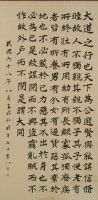 大道之行也天下為公選賢與能講信修
睦故人不獨親其親不獨子其子使老有
所終壯有所用幼有所長矜寡孤獨廢疾
者皆有所養男有分女有歸貨惡其棄於
地也不必藏於己力惡其不出於身也不
必為己是故謀閉而不興盜竊亂賊而不
作故外戶而不閉是謂大同
民國六十八年八月